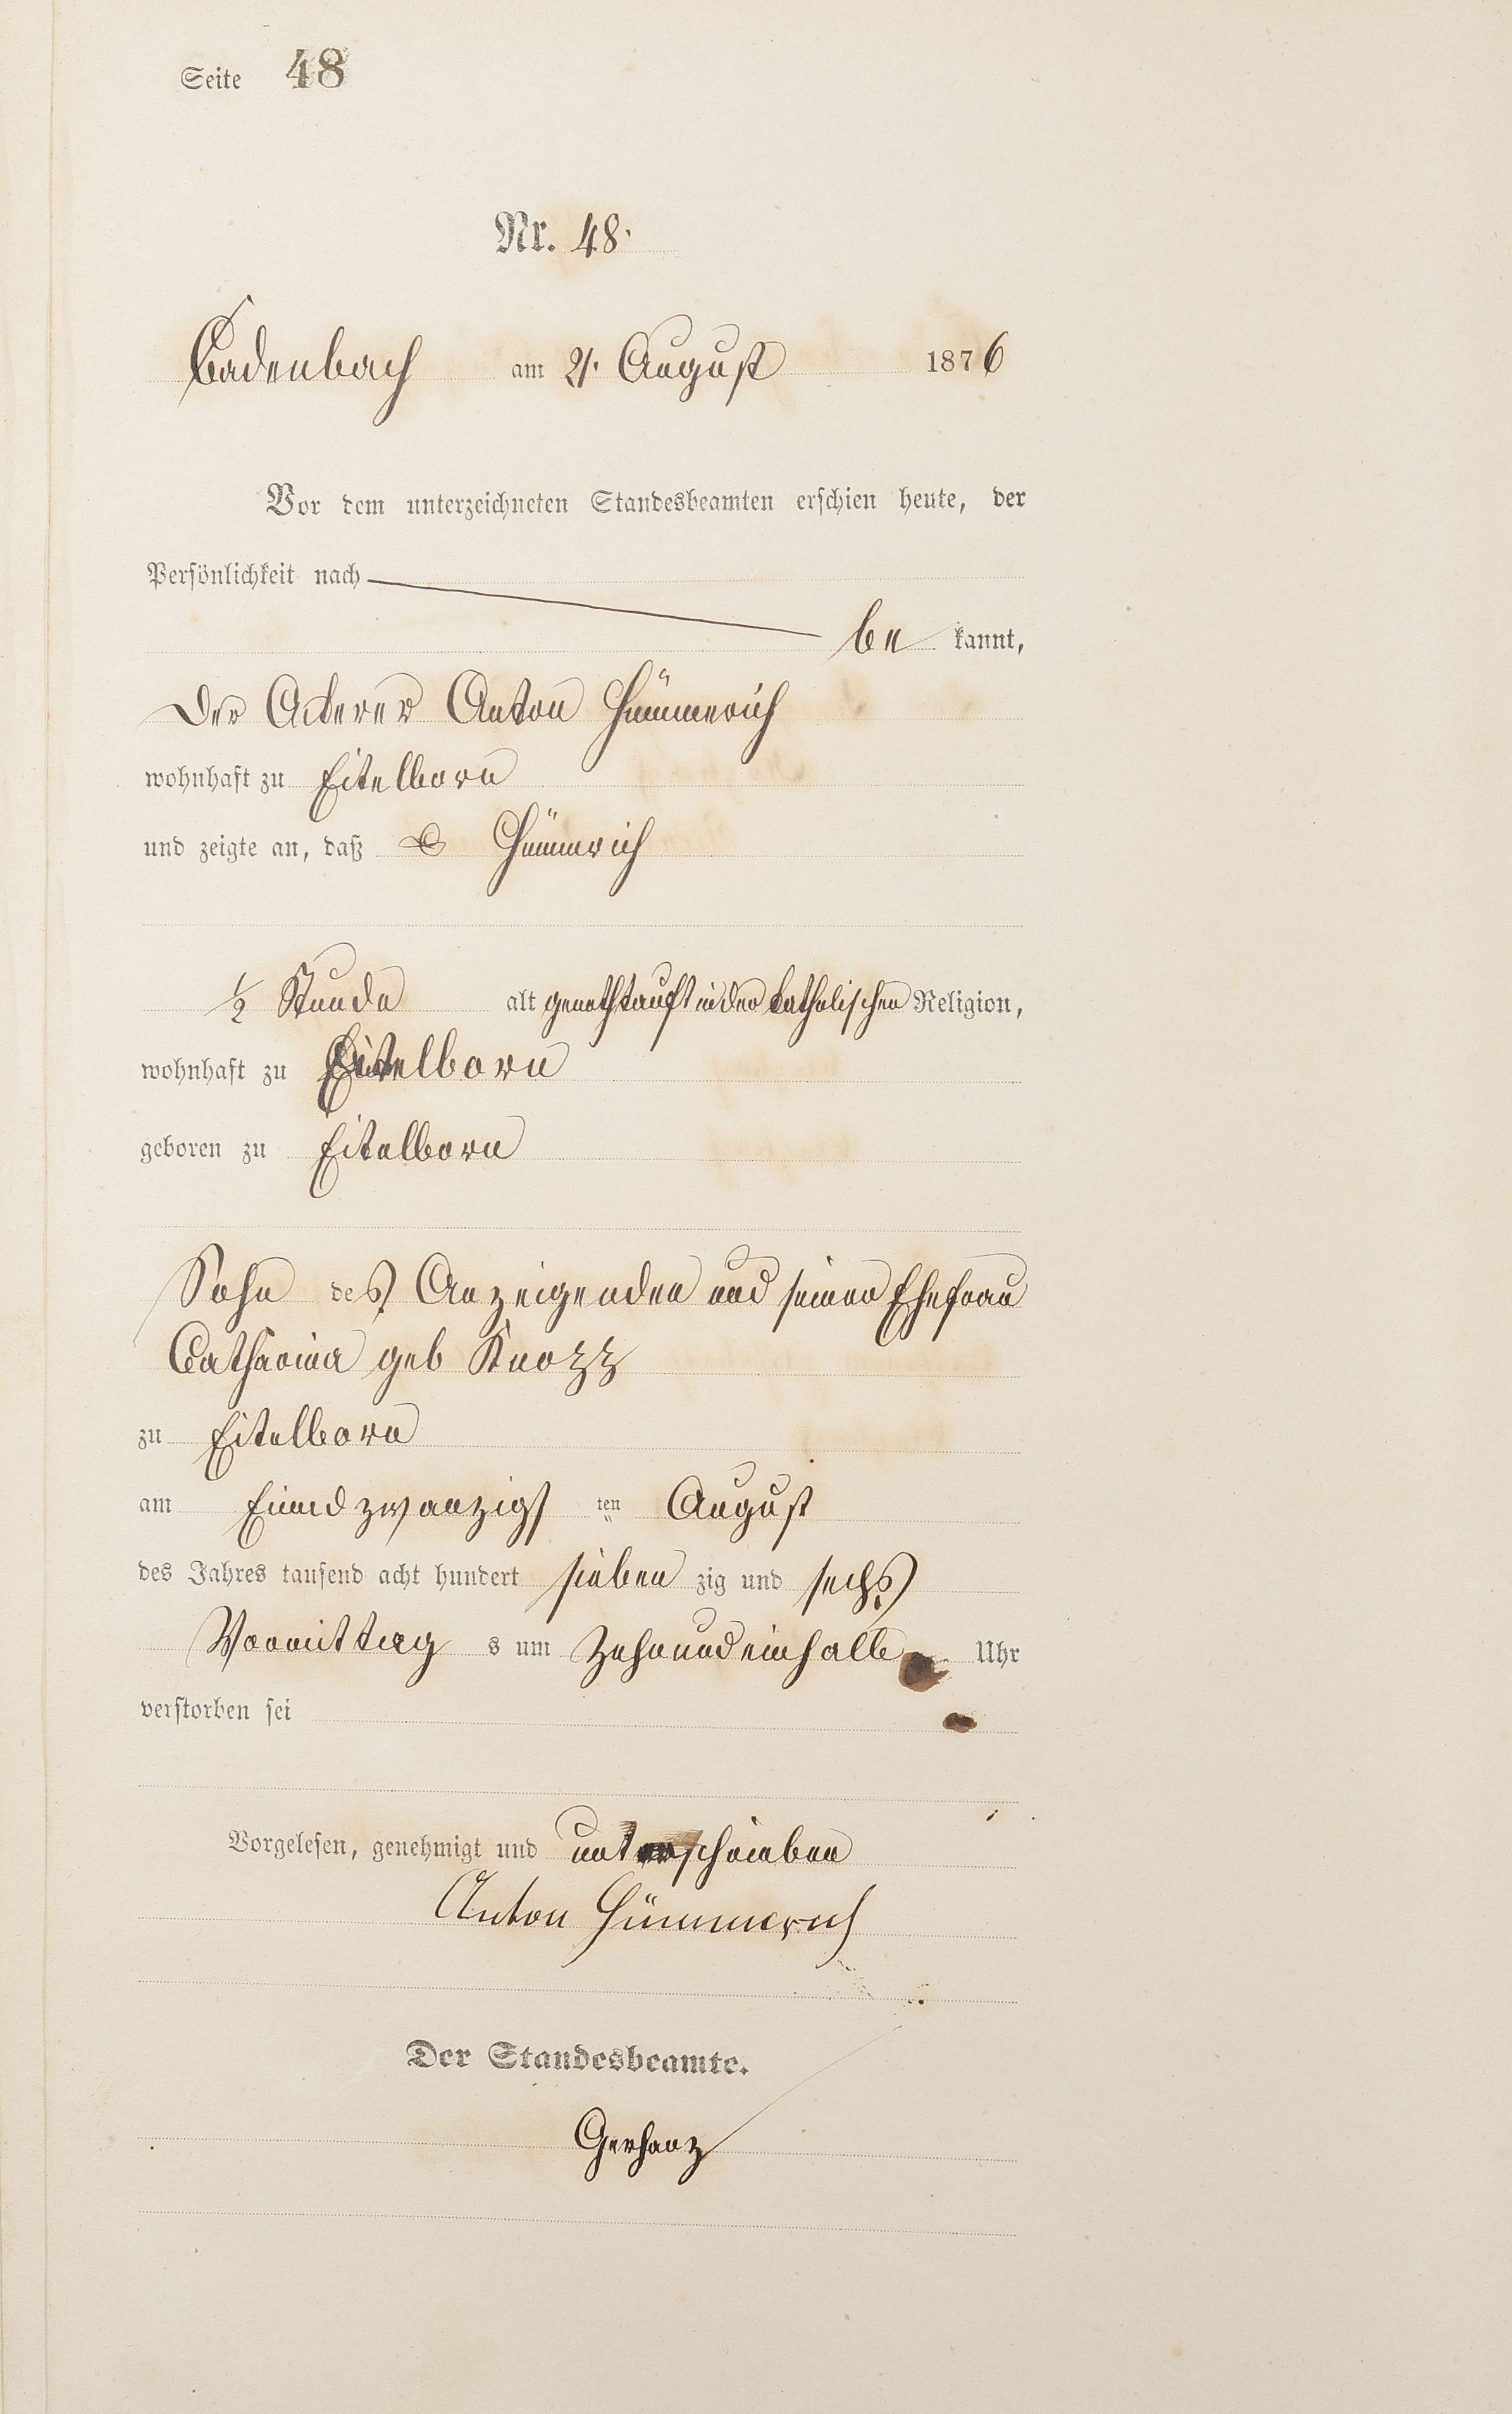 Seite 48
Nr. 48.
Cadenbach am 21. August 1876
Vor dem unterzeichneten Standesbeamten erschien heute, der
Persönlichkeit nach
be kannt,
der Ackerer Anton Hümmerich
wohnhaft zu Eitelborn
und zeigte an, daß Hümmrich
1/2 Stunde alt genothtauft in der katholischen Religion,
wohnhaft zu Eitelborn
geboren zu Eitelborn
Sohn des Anzeigenden und seiner Ehefrau
Catharina geb Knozz
zu Eitelborn
am Einund zwanzigs ten August
des Jahres tausend acht hundert sieben zig und sechs
Vormittag s um Zehnundeinhalb Uhr
verstorben sei
Vorgelesen, genehmigt und unterschrieben
Anton Hümmerich
Der Standesbeamte.
Gerharz